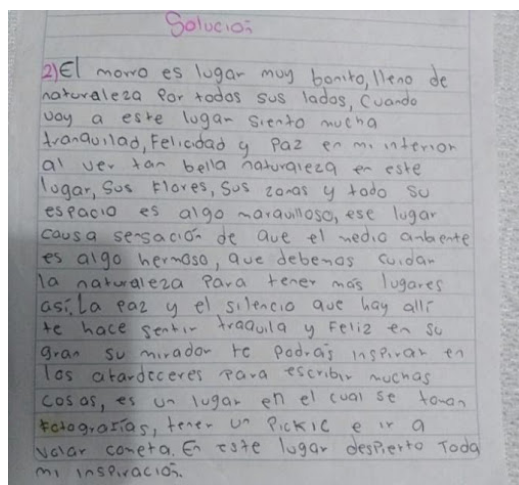 Solución
2) El morro es lugar muy bonito, lleno de
naturaleza por todos sus lados, Cuando
voy a este lugar siento mucha
tranquilad, Felicidad y Paz en mi interior
al ver tan bella naturaleza en este
lugar, Sus Flores, Sus zonas y todo su
espacio es algo maravilloso, ese lugar
causa sensación de que el medio ambiente
es algo hermoso, que debemos cuidar
la naturaleza Para tener más lugares
así, La paz y el silencio que hay allí
te hace sentir traquila y Feliz en su
gran su mirador te Podrás inspirar en
los atardeceres Para escribir muchas
cosas, es un lugar en el cual se toman
Fotografías, tener un Pickic e ir a
volar cometa. En este lugar despierto Toda
mi inspiración.